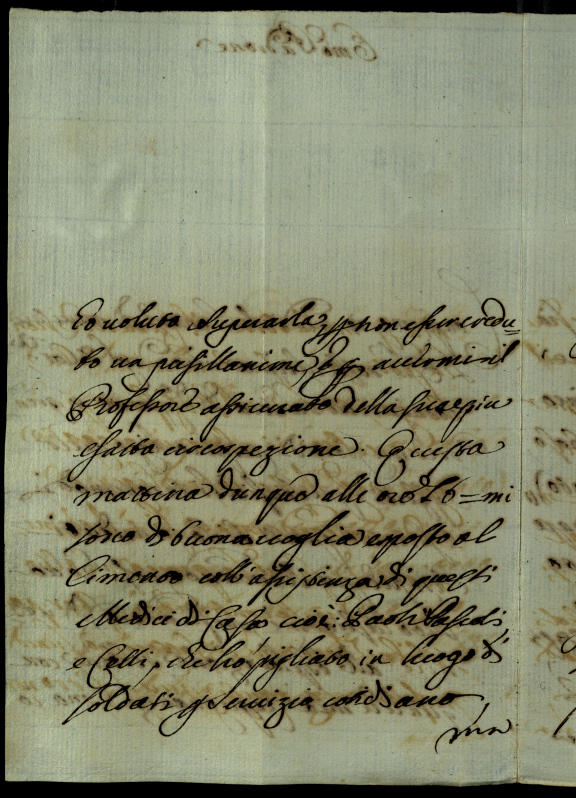 Ho voluto superarla, p non esser credu=
to un pusillanime, e p avermi il
Professore assicurato della sua più
esatta circospezione. Questa
mattina dunque alle ore 16 = mi
sono di buona voglia esposto al
Cimento coll'assistenza di questi
Medici di Casa cioè: Paoli Pascoli,
e Celli, che hò pigliato in luogo di
soldati p servizio cotidiano